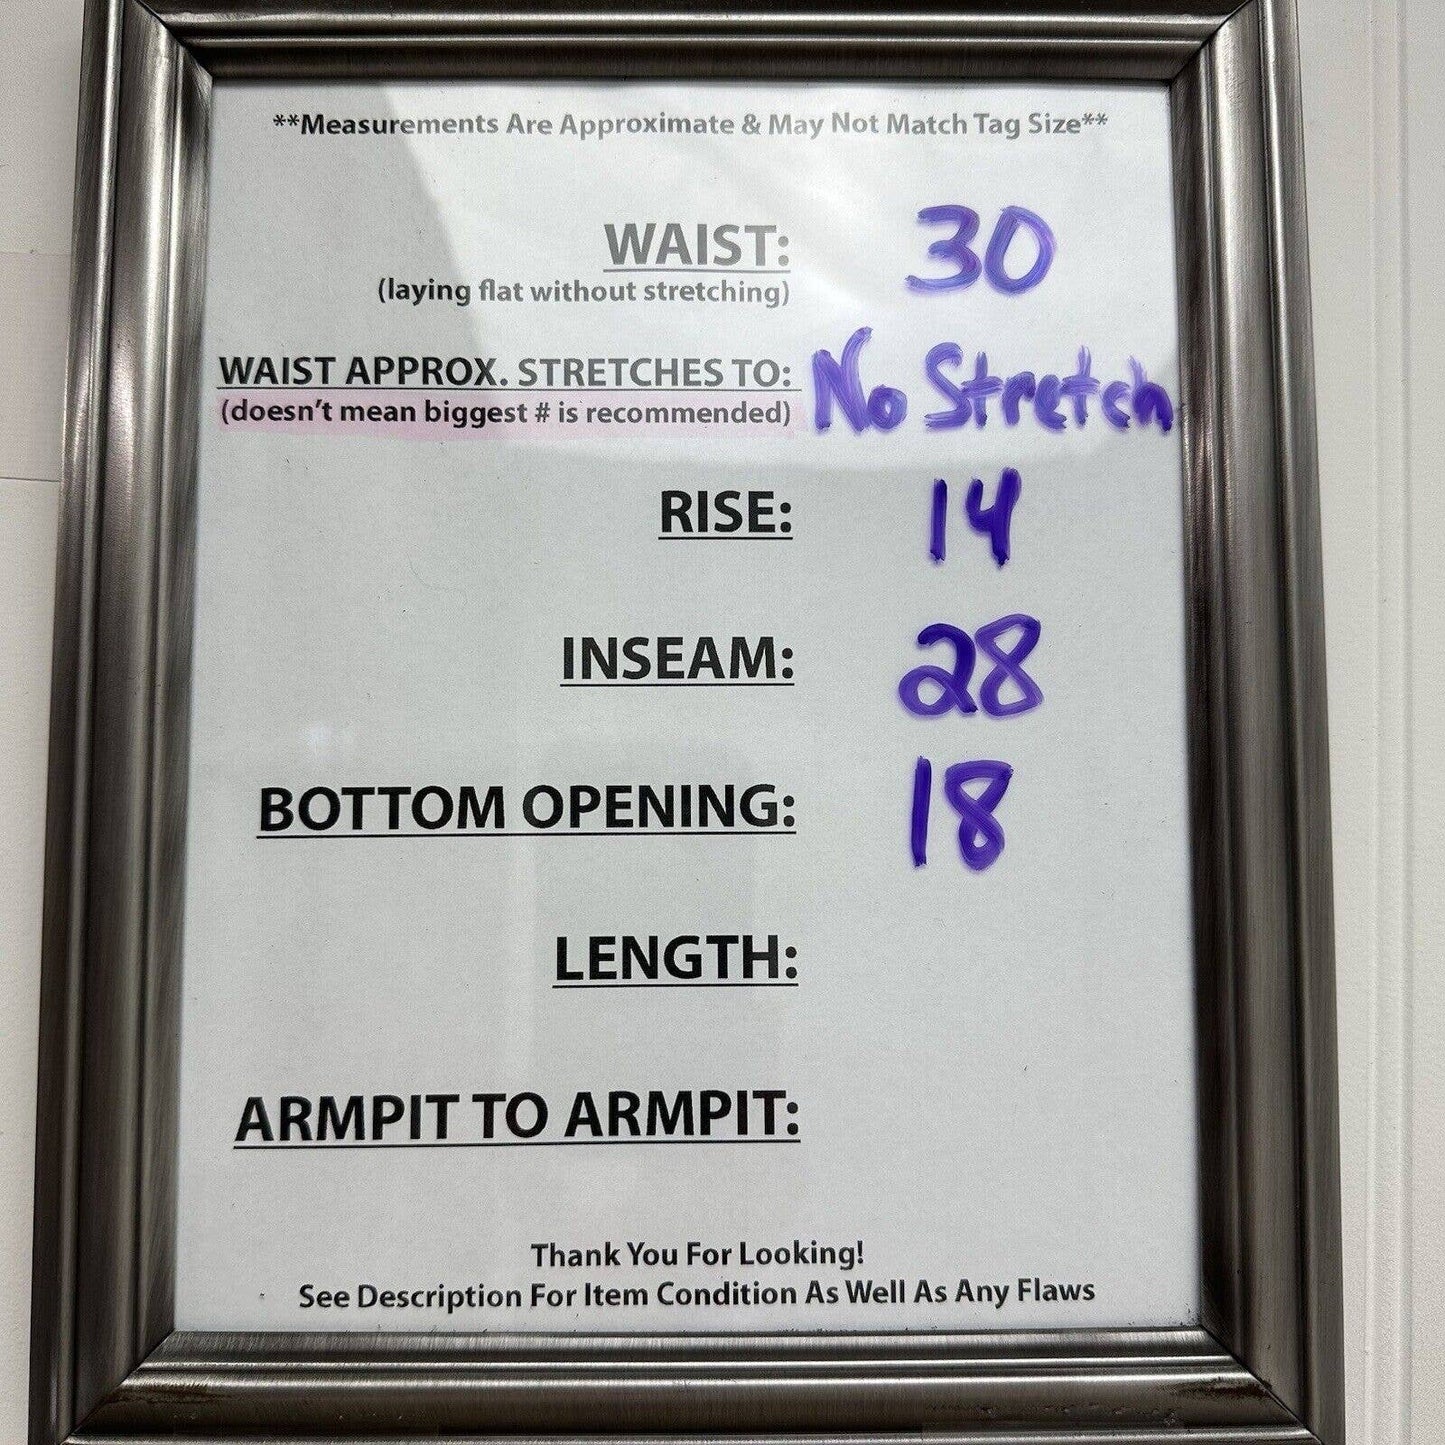 **Measurements Are Approximate & May Not Match Tag Size**
WAIST: 30
(laying flat without stretching)
WAIST APPROX. STRETCHES TO: No Stretch
(doesn't mean biggest # is recommended)
RISE: 14
INSEAM: 28
BOTTOM OPENING: 18
LENGTH:
ARMPIT TO ARMPIT:
Thank You For Looking!
See Description For Item Condition As Well As Any Flaws